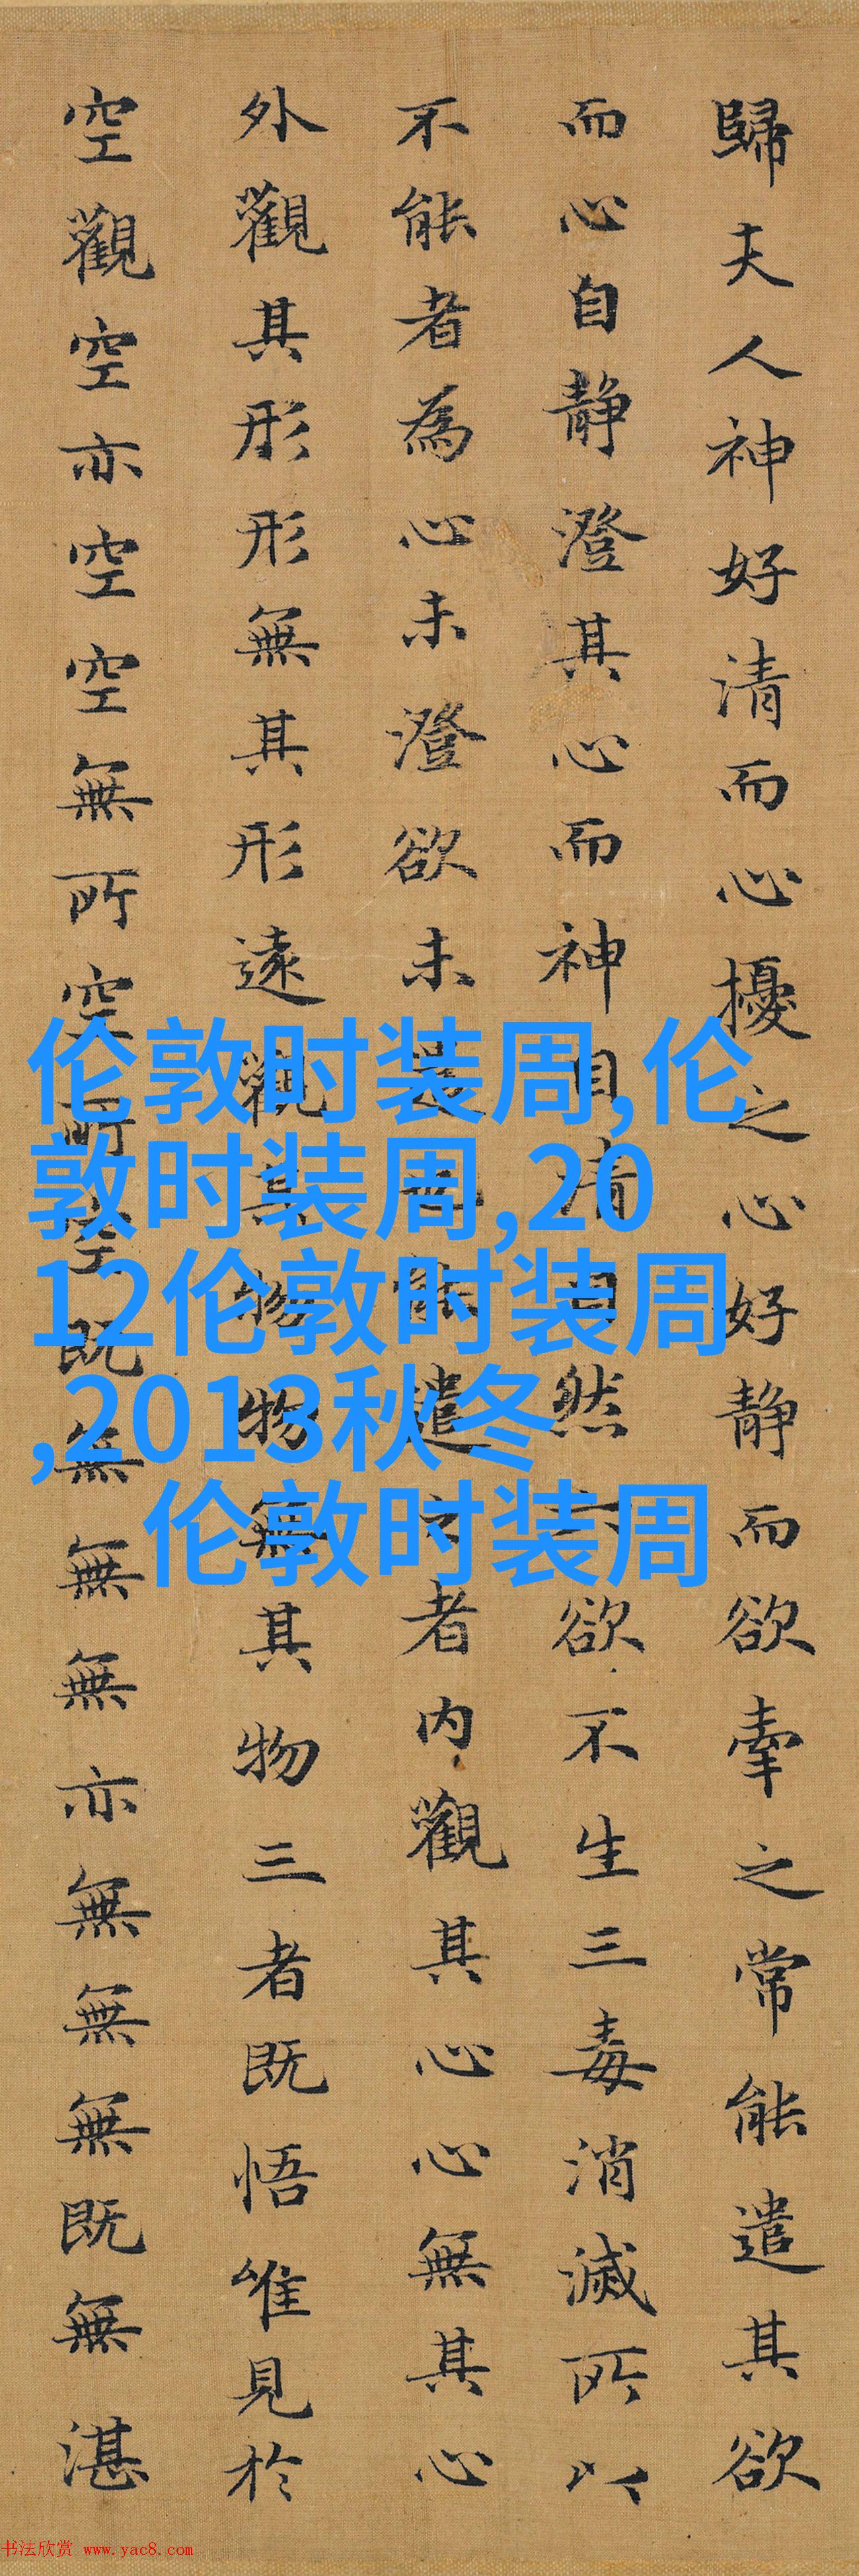 歸夫人神好清而心擾之心好静而欲牽之常能遣其欲
而心自静澄其心而神自清自然六欲不生三毒消滅所以
不能者為心未澄欲未遣也能遣之者内觀其心心無其心
外觀其形形無其形遠觀其物物無其物三者既悟唯見於
空觀空亦空空無所空所空既無無無亦無無無既無湛
伦敦时装周,伦
敦时装周,20
12伦敦时装周
,2013秋冬
伦敦时装周
书法欣赏 www.yac8.com